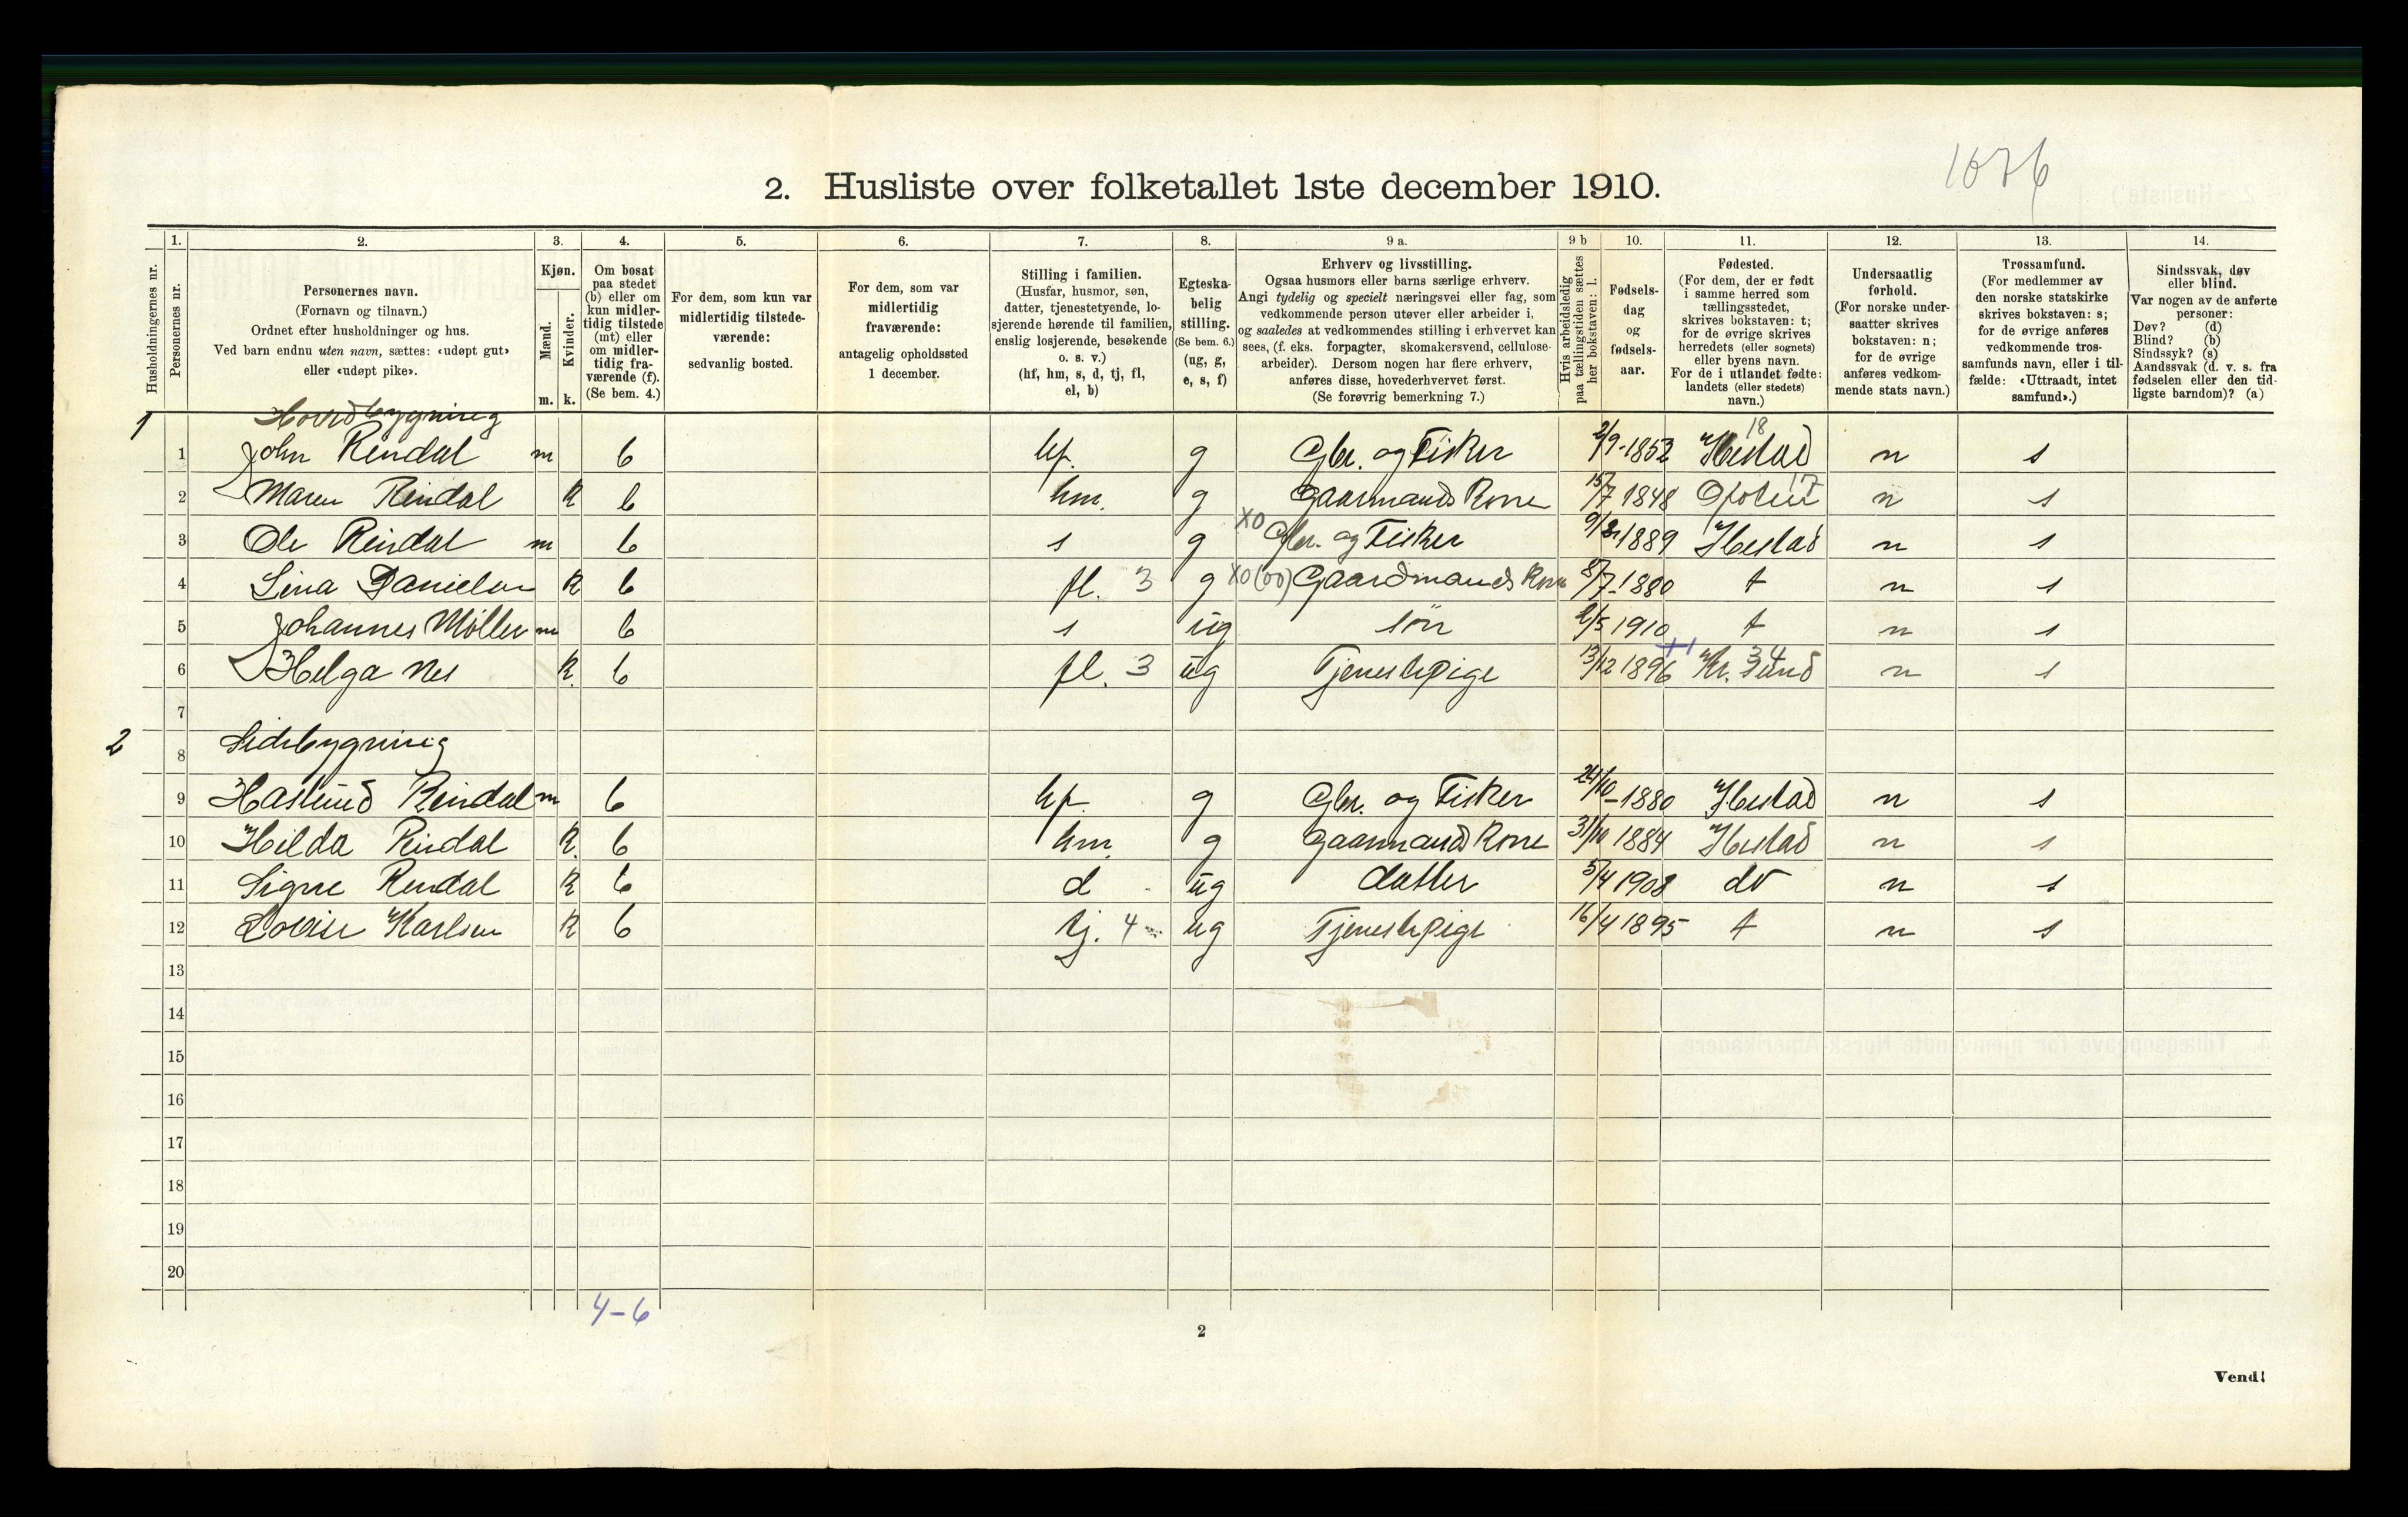 1076
2. Husliste over folketallet 1ste december 1910.
Husholdningernes nr.
1.
Personernes nr.
2.
Personernes navn.
(Fornavn og tilnavn.)
Ordnet efter husholdninger og hus.
Ved barn endnu uten navn, sættes: «udøpt gut»
eller «udøpt pike».
3.
Kjøn.
Mænd.
Kvinder.
m. k.
4.
Om bosat
paa stedet
(b) eller om
kun midler-
tidig tilstede
(mt) eller
om midler-
tidig fra-
værende (f).
(Se bem. 4.)
5.
For dem, som kun var
midlertidig tilstede-
værende:
sedvanlig bosted.
6.
For dem, som var
midlertidig
fraværende:
antagelig opholdssted
1 december.
7.
Stilling i familien.
(Husfar, husmor, søn,
datter, tjenestetyende, lo-
sjerende hørende til familien,
enslig losjerende, besøkende
o. s. v.)
(hf, hm, s, d, tj, fl,
el, b)
8.
Egteska-
belig
stilling.
(Se bem. 6.)
(ug, g,
e, s, f)
9 a.
Erhverv og livsstilling.
Ogsaa husmors eller barns særlige erhverv.
Angi tydelig og specielt næringsvei eller fag, som
vedkommende person utøver eller arbeider i,
og saaledes at vedkommendes stilling i erhvervet kan
sees, (f. eks. forpagter, skomakersvend, cellulose-
arbeider). Dersom nogen har flere erhverv,
anføres disse, hovederhvervet først.
(Se forøvrig bemerkning 7.)
9 b
Hvis arbeidsledig
paa tællingstiden sættes
her bokstaven: l.
10.
Fødsels-
dag
og
fødsels-
aar.
11.
Fødested.
(For dem, der er født
i samme herred som
tællingsstedet,
skrives bokstaven: t;
for de øvrige skrives
herredets (eller sognets)
eller byens navn.
For de i utlandet fødte:
landets (eller stedets)
navn.)
12.
Undersaatlig
forhold.
(For norske under-
saatter skrives
bokstaven: n;
for de øvrige
anføres vedkom-
mende stats navn.)
13.
Trossamfund.
(For medlemmer av
den norske statskirke
skrives bokstaven: s;
for de øvrige anføres
vedkommende tros-
samfunds navn, eller i til-
fælde: «Uttraadt, intet
samfund».)
14.
Sindssvak, døv
eller blind.
Var nogen av de anførte
personer:
Døv? (d)
Blind? (b)
Sindssyk? (s)
Aandssvak (d. v. s. fra
fødselen eller den tid-
ligste barndom)? (a)
1 Hovedbygning
1 John Rindal m b hf. g Gbr. og Fisker 2/9-1852 18 Hestad n s
2 Maren Rindal k b hm. g Gaarmands Kone 15/7 1848 Ofoten 17 n s
3 Ole Rindal m b s g XO Gbr. og Fisker 1889 Hestad n s
4 Lina Danielsen k b fl. 3 g XO(00) Gaardmands Kone 8/7-1880 t n s
5 Johannes Møller m b s ug sön 2/5 1910 t n s
6 Helga Nes k. b fl. 3 ug Tjenestepige 13/12 1896 34 Kr. Sund n s
7
2
8 Sidebygning
9 Haslund Rindal m b hf. g Gbr. og Fisker 24/10-1880 Hestad n s
10 Hilda Rindal k. b hm. g Gaarmands Kone 31/10 1884 Hestad n s
11 Signe Rindal k b d ug datter 5/4 1908 do n s
12 Lovise Karlsen k b tj. 4 ug Tjenestepige 16/4 1895 t n s
13
14
15
16
17
18
19
20
4-6
2
Vend!